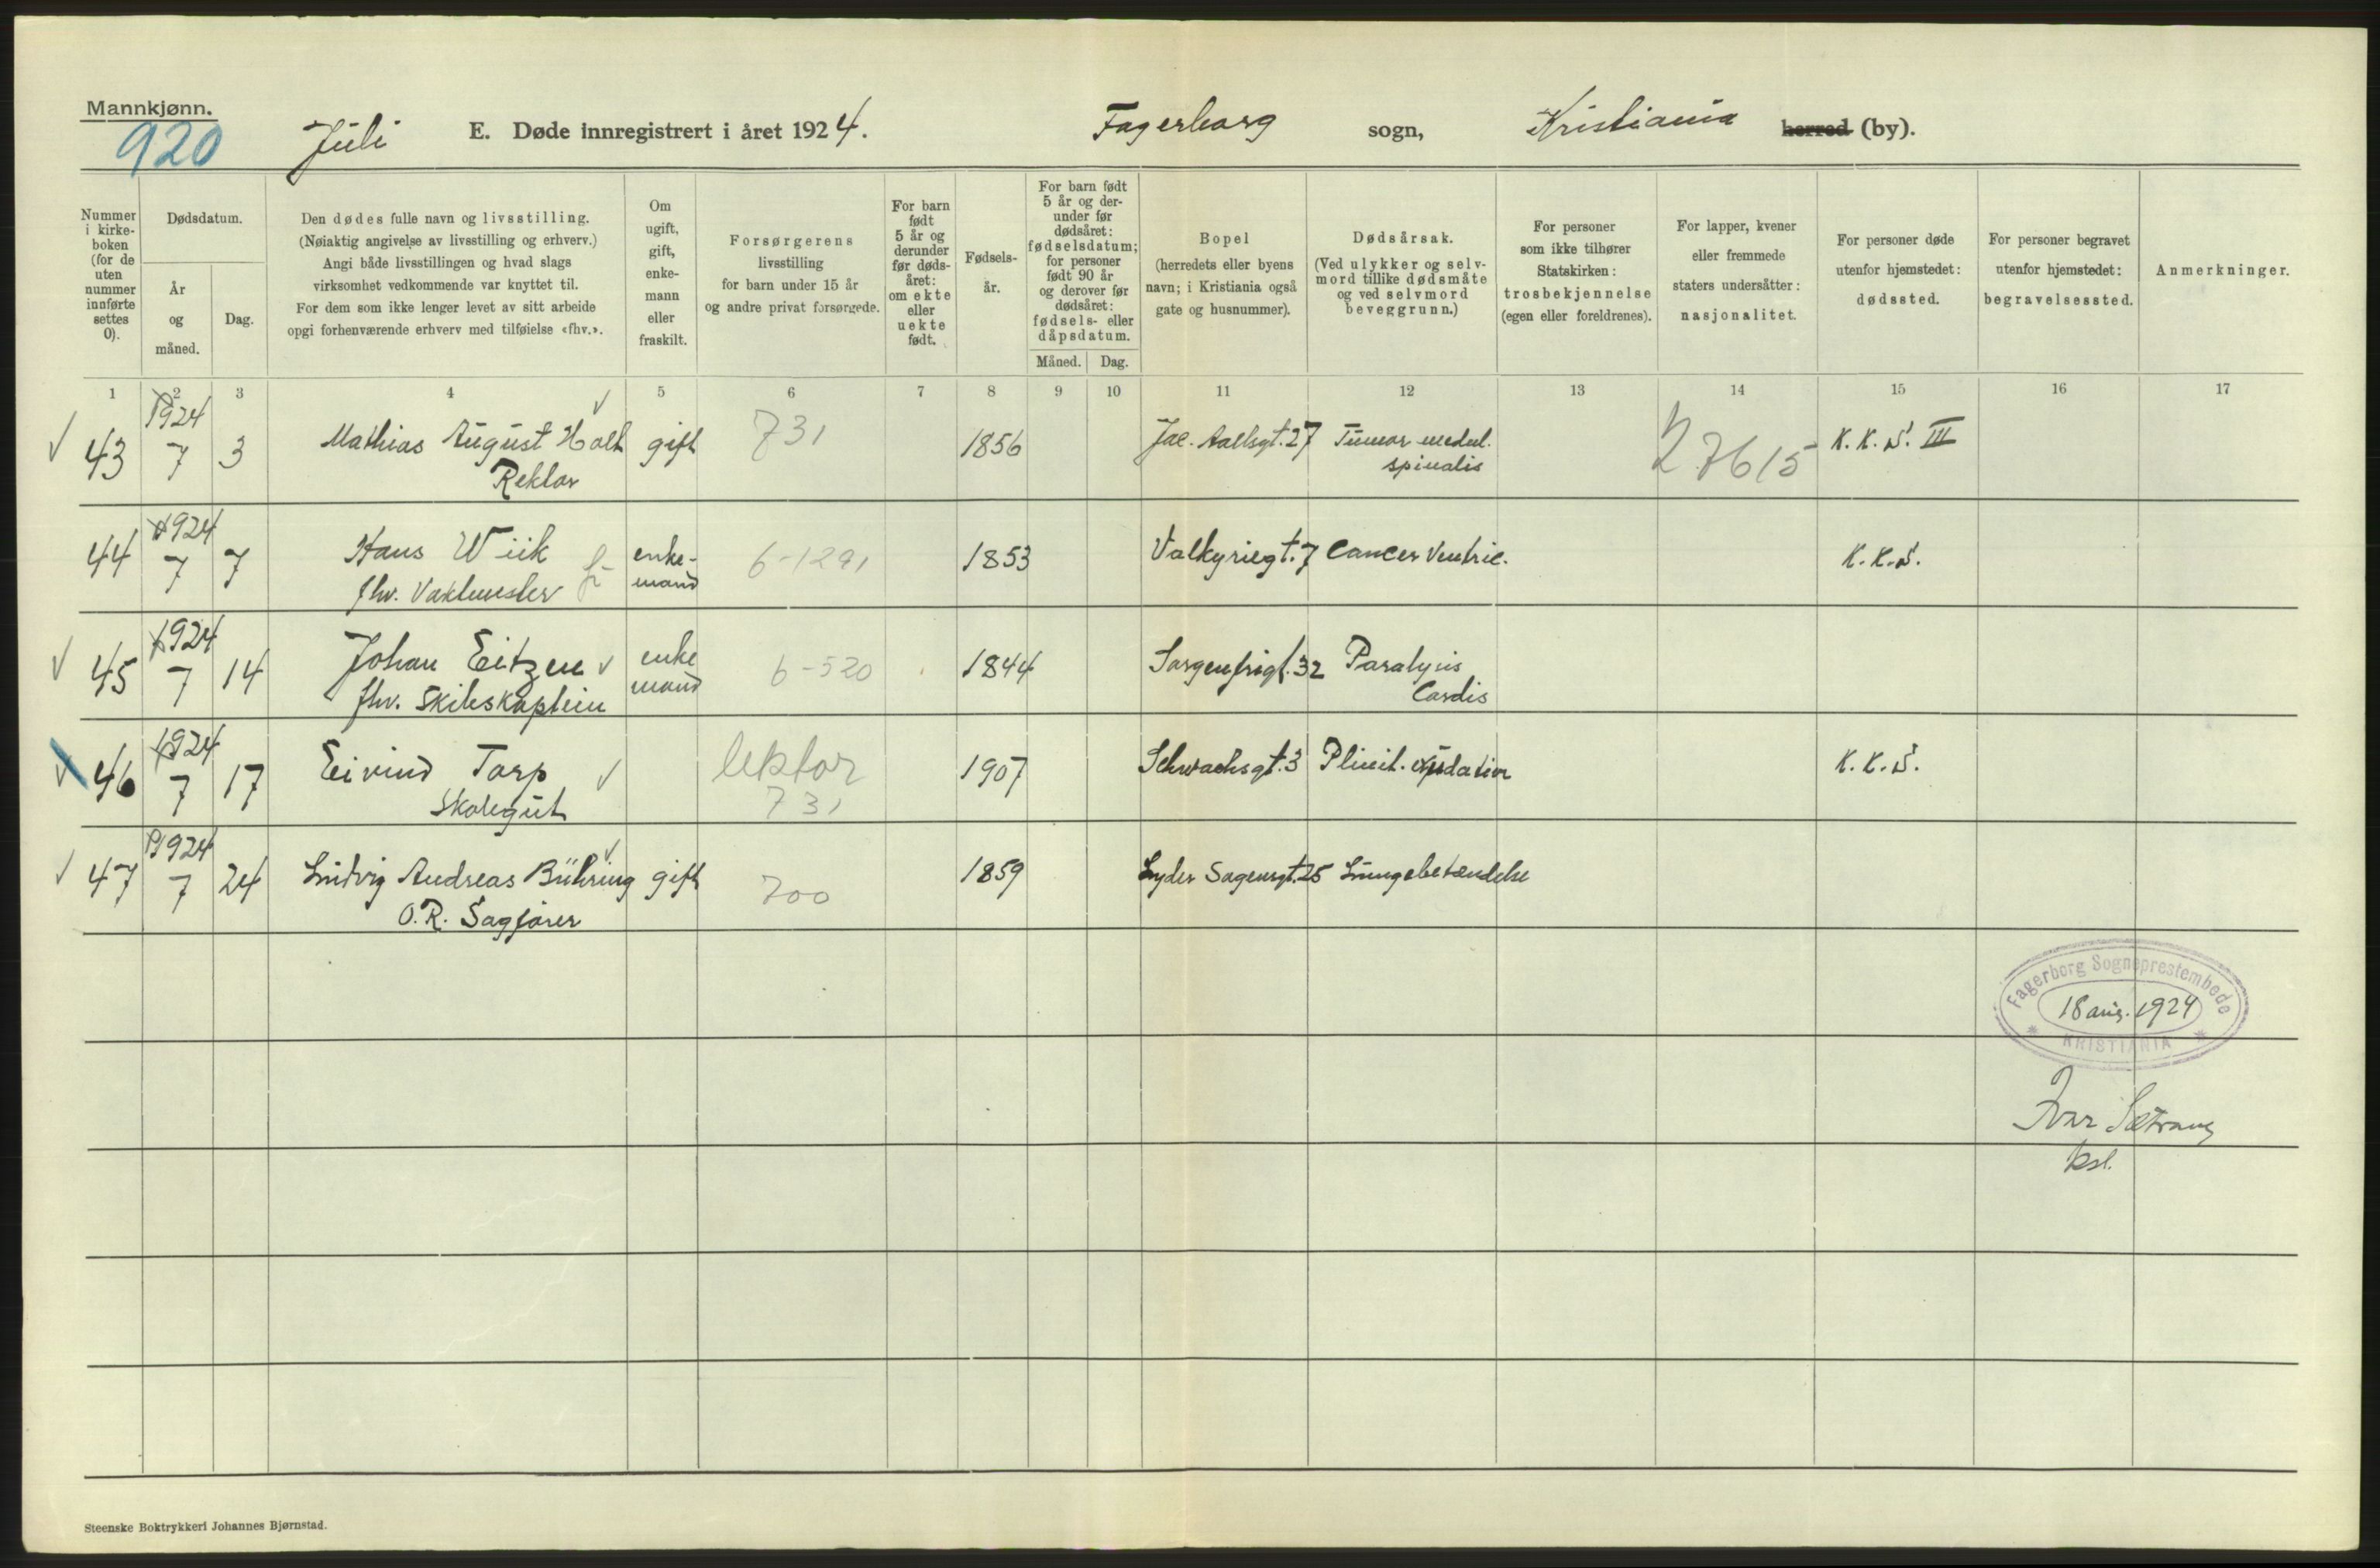 Mannkjønn.
920
Juli
E. Døde innregistrert i året 1924.
Fagerborg sogn,
Kristiania herred (by).
Nummer i kirke-boken (for de uten nummer innførte settes 0).
Dødsdatum.
År og måned.
Dag.
Den dødes fulle navn og livsstilling.
(Nøiaktig angivelse av livsstilling og erhverv.)
Angi både livsstillingen og hvad slags
virksomhet vedkommende var knyttet til.
For dem som ikke lenger levet av sitt arbeide
opgi forhenværende erhverv med tilføielse «fhv.».
Om ugift, gift, enke-mann eller fraskilt.
Forsørgerens
livsstilling
for barn under 15 år
og andre privat forsørgede.
For barn født 5 år og derunder før døds-året: om ekte eller uekte født.
Fødsels-år.
For barn født 5 år og der-under før dødsåret: fødselsdatum; for personer født 90 år og derover før dødsåret: fødsels- eller dåpsdatum.
Måned. Dag.
Bopel
(herredets eller byens
navn; i Kristiania også
gate og husnummer).
Dødsårsak.
(Ved ulykker og selv-
mord tillike dødsmåte
og ved selvmord
beveggrunn.)
For personer
som ikke tilhører
Statskirken:
trosbekjennelse
(egen eller foreldrenes).
For lapper, kvener
eller fremmede
staters undersåtter:
nasjonalitet.
For personer døde
utenfor hjemstedet:
dødssted.
For personer begravet
utenfor hjemstedet:
begravelsessted.
Anmerkninger.
1 2 3 4 5 6 7 8 9 10 11 12 13 14 15 16 17
43 1924 7 3 Mathias August Holt gift 731 1856 Jac. Aallsgt. 27 Tumor medul. 27615 K.K.S. III
Rektor spinalis
44 1924 7 7 Hans Wiik enke- 6-1291 1853 Valkyriegt. 7 Cancer Ventric. K.K.S.
fhv. Vaktmester mand
45 1924 7 14 Johan Eitzen enke 6-520 1844 Sorgenfrigt. 32 Paralysis
fhv. Skibskaptein mand Cordis
46 1924 7 17 Eivind Tarp lektor 1907 Schwachsgt. 3 K.K.S.
Skolegut 731
47 1924 7 24 Ludvig Andreas Bühring gift 700 1859 Lyder Sagensgt. 25 Lungebetændelse
O.R. Sagfører
Fagerborg Sogneprestembede
18 aug. 1924
KRISTIANIA
Ivar Sætrang
ksl.
Steenske Boktrykkeri Johannes Bjørnstad.